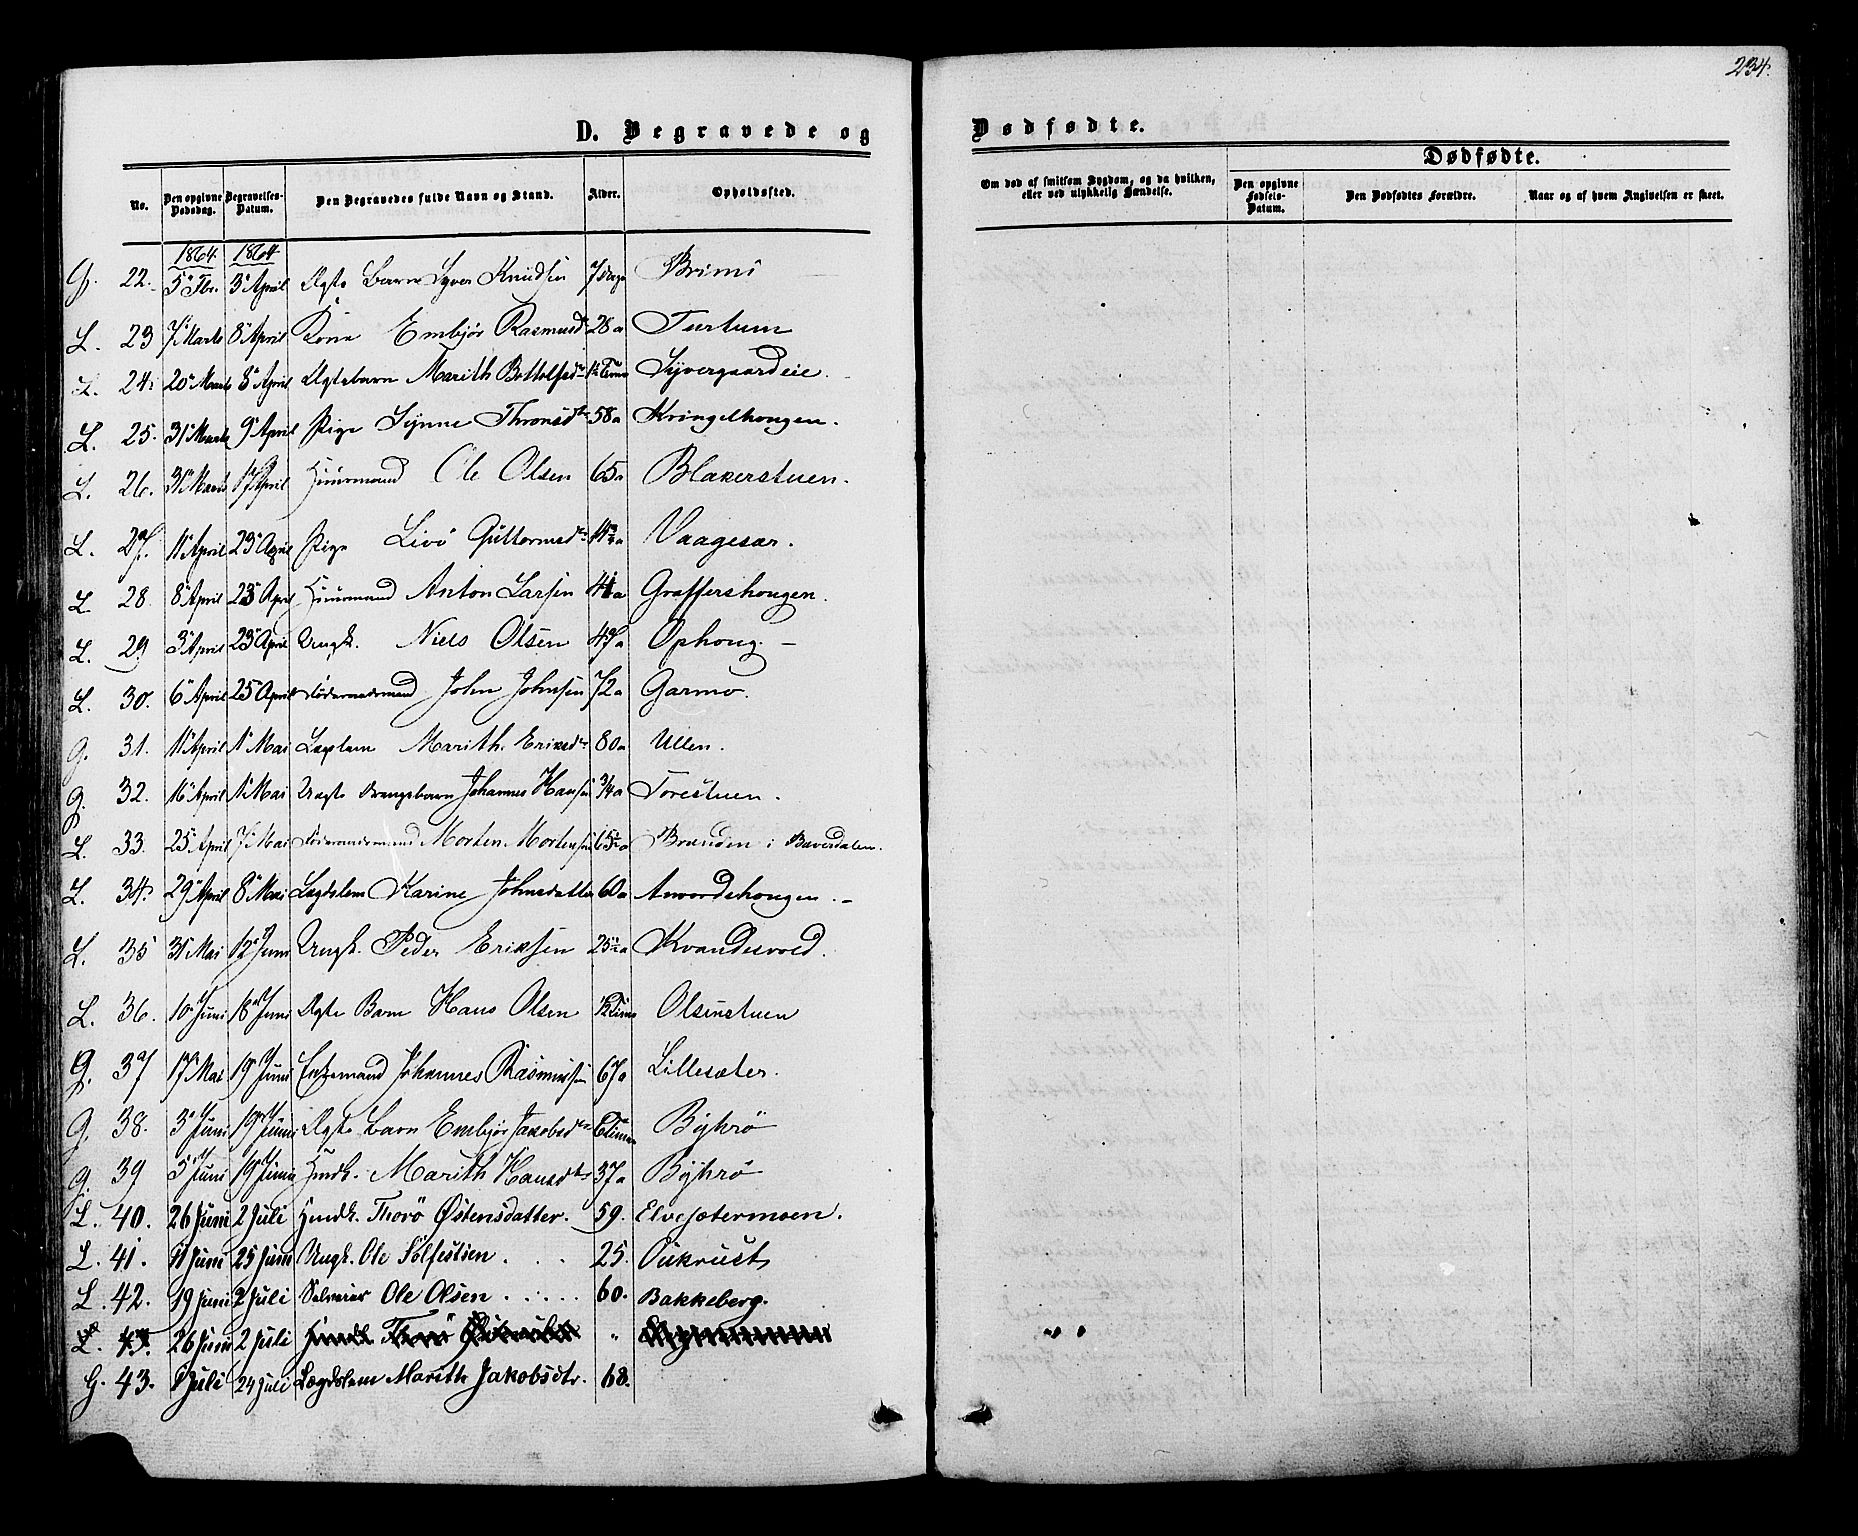 234.
D. Begravede og Dødfødte.
Dødfødte.
No.
Den opgivne Dødsdag.
Begravelses-Datum.
Den Begravedes fulde Navn og Stand.
Alder.
Opholdssted.
Om død af smitsom Sygdom, og da hvilken, eller ved ulykkelig Hændelse.
Den opgivne Fødsels-Datum.
Den Dødfødtes Forældre.
Naar og af hvem Angivelsen er skeet.
1864 1864
G. 22. 5 Fbr. 3 April Ægte Barn Syver Knudsen 7 Dage Brimi
L. 23 7 Marts 8 April Kone Embjør Rasmusdr 28 a Turtum
L. 24. 20 Marts 8 April Ægtebarn Marith Bottolfsdr Syvergaardeie.
L. 25. 31 Marts 9 April Pige Synne Thronsdtr 58 a Kringelhougen.
L. 26. 31 Marts 17 April Huusmand Ole Olsen 65 a Blakerstuen.
L. 27. 11 April 23 April Pige Livö Guttormsdr Vaagesar.
L. 28. 8 April 23 April Huusmand Anton Larsen 41 a Graffershougen.
L. 29 3 April 23 April Ungk. Niels Olsen 47 a Ophoug.
L. 30. 6 April 25 April Föderaadsmand John Johnsen 72 a Garmo.
G. 31. 11 April 1 Mai Lægdslem Marith Eriksdr 80 a Ullen.
G. 32. 16 April 1 Mai Uægte Drengebarn Johannes Hansen 3/4 a Torestuen.
L. 33. 25 April 7 Mai Föderaadsmand Morten Mortensen 65 a Brænden i Bæverdalen.
L. 34. 29 April 8 Mai Lægdslem Karine Johnsdatter 60 a Anvordshougen.
L. 35 31 Mai 12 Juni Ungk. Peder Eriksen 25 a Kvandesvold.
L. 36. 10 Juni 18 Juni Ægte Barn Hans Olsen 1/2 Time Olsenstuen
G. 37 17 Mai 19 Juni Enkemand Johannes Rasmussen 67 a Lillesæter.
G. 38. 3 Juni 19 Juni Ægte Barn Embjör Jakobsdr 6 Timer Böjhrø
G. 39 5 Juni 19 Juni Hmdk. Marith Hansdtr 37 a Böjhrø
L. 40. 26 Juni 2 Juli Hmdk. Thorö Østensdatter. 59. Elvesætermoen.
L. 41. 11 Juni 25 Juni Ungk. Ole Sölfestsen . . . 25. Aukrust
L. 42. 19 Juni 2 Juli Selveier Ole Olsen . . . . . 60. Bakkeberg.
L. 43. 26 Juni 2 Juli Hmdk Thorö "
G. 43. 1 Juli 24 Juli Lægdslem Marith Jakobsdtr. 68.